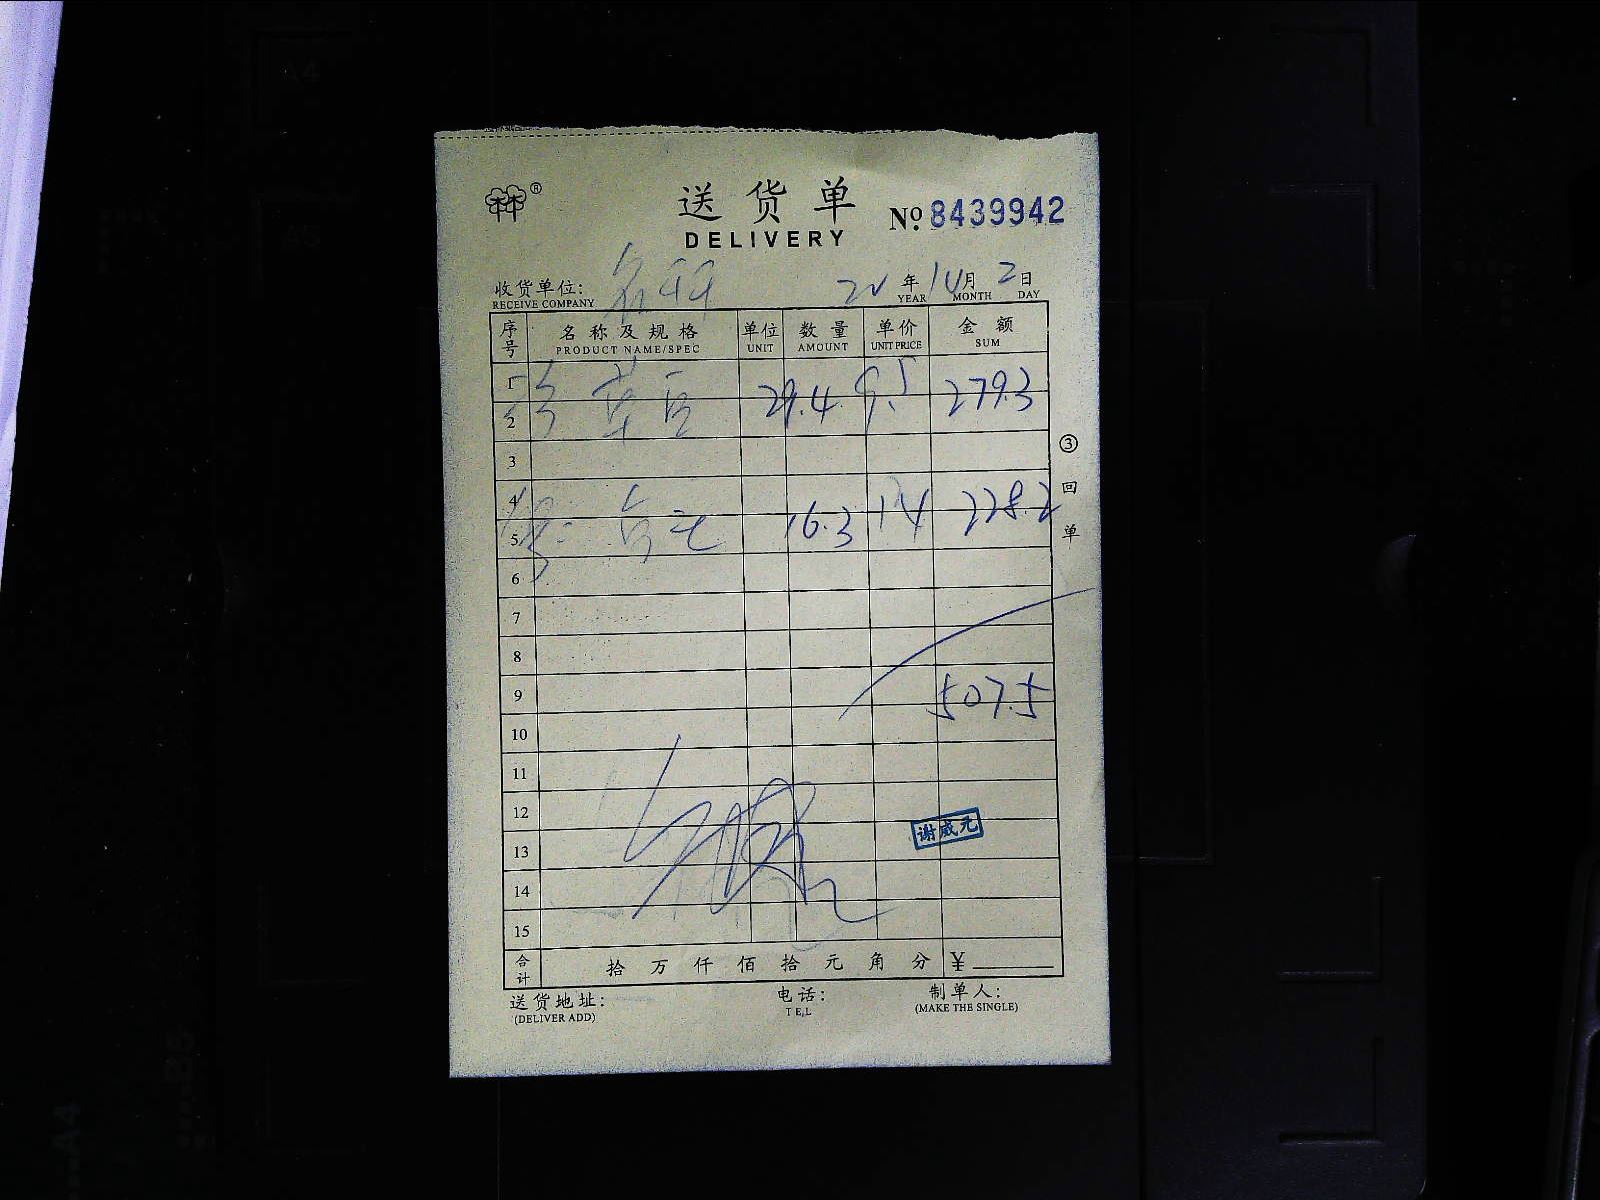 林®
送货单
DELIVERY
No. 8439942
收货单位:
RECEIVE COMPANY
年 月 2日
YEAR MONTH DAY
序号 名称及规格 单位 数量 单价 金额
PRODUCT NAME/SPEC UNIT AMOUNT UNIT PRICE SUM
1 29.4 9.5 279.3
2
3
4
5 16.3 14 228.2
6
7
8
9 507.5
10
11
12
13 谢威元
14
15
合计 拾万仟佰拾元角分 ¥
③回单
送货地址: 电话: 制单人:
(DELIVER ADD) TE,L (MAKE THE SINGLE)